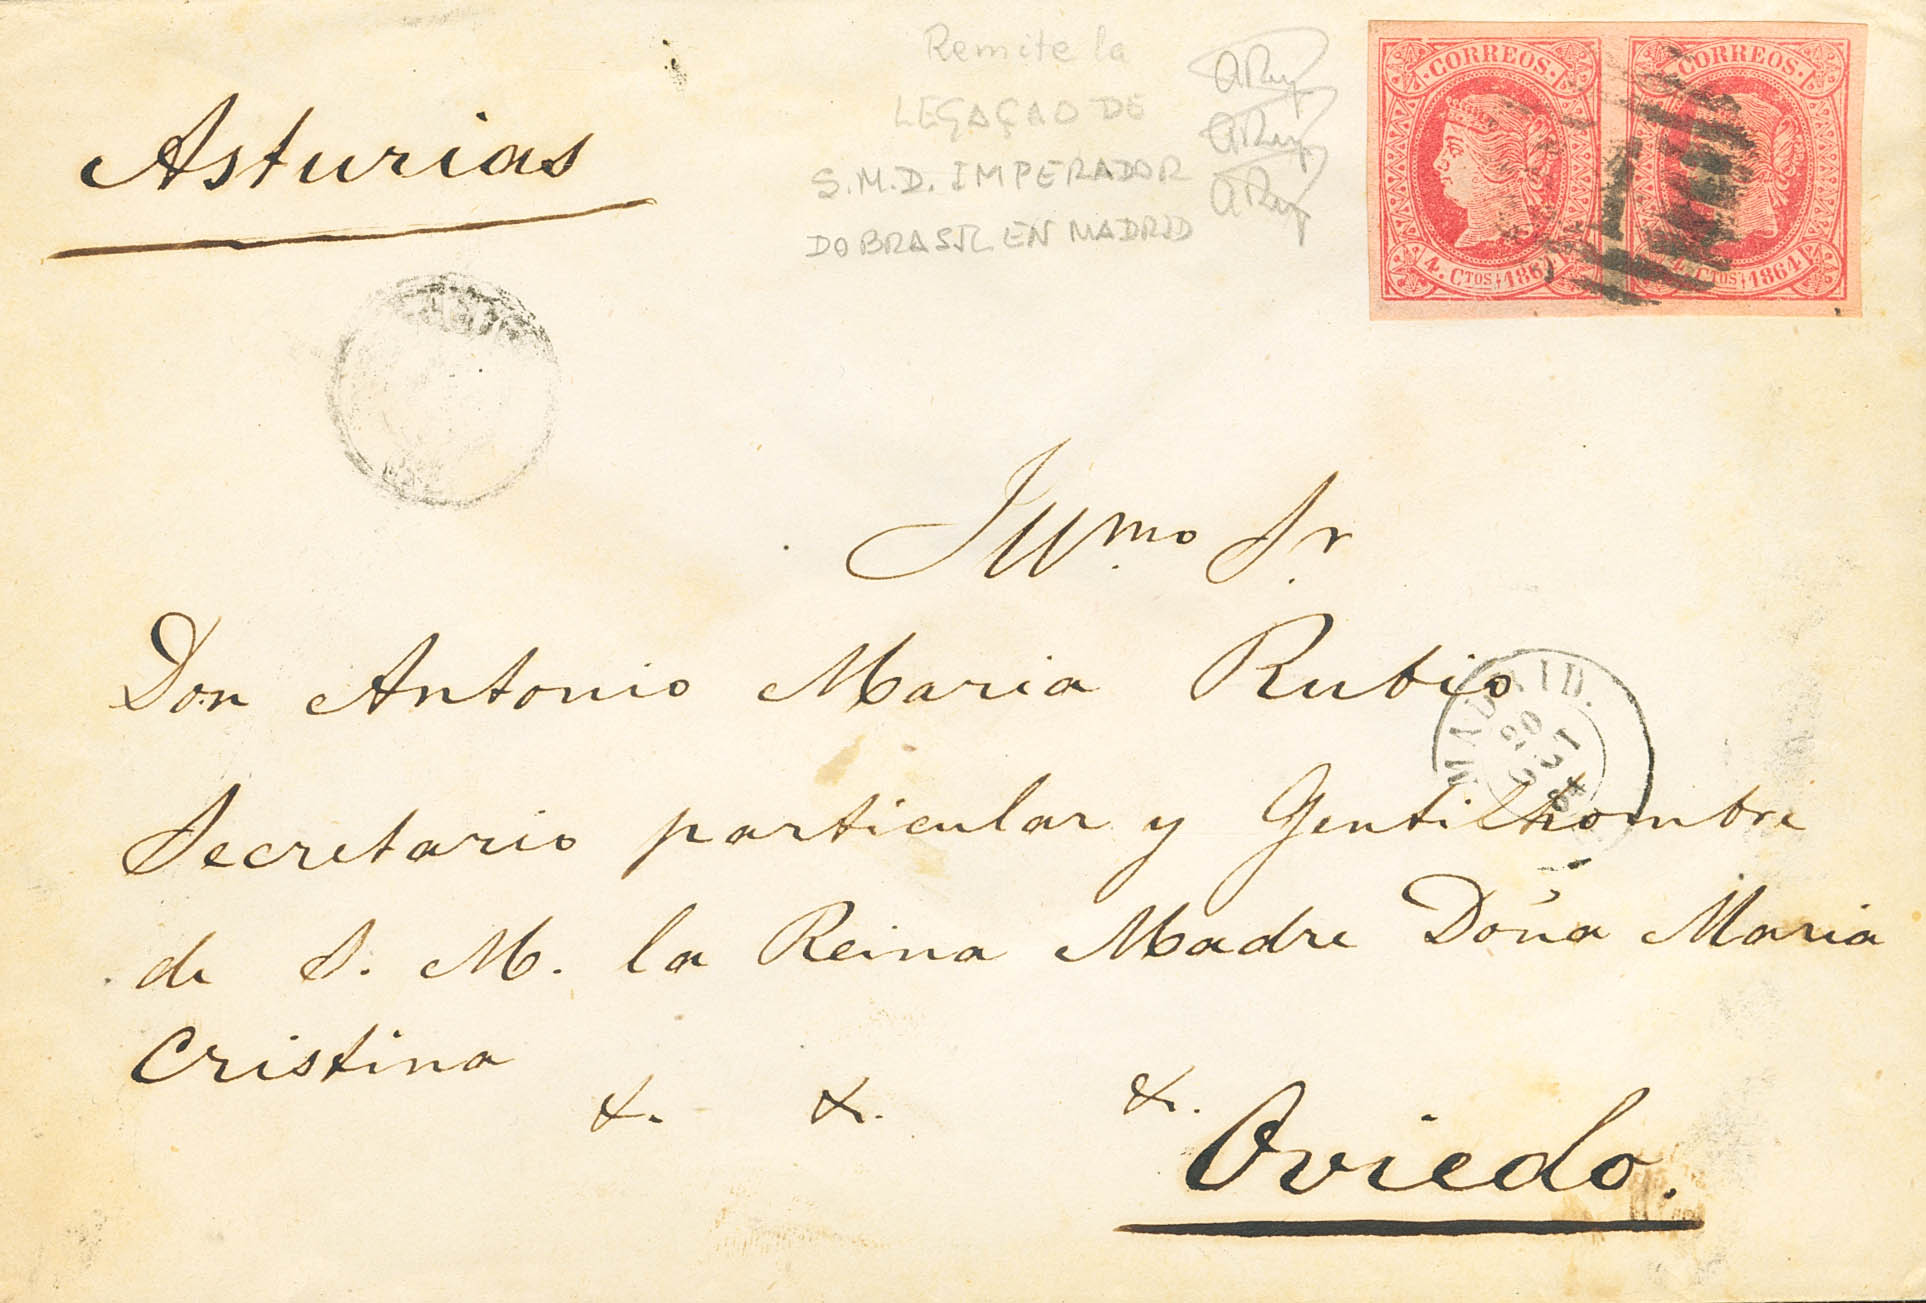 Remite la
LEGAÇAO DE
S.M.D. IMPERADOR
DO BRASIL EN MADRID
Asturias
CORREOS
4. CTOS 186
CORREOS
CTOS 1864
Illmo. Sr.
Don Antonio Maria Rubio
MADRID.
20
OCT
64
Secretario particular y Gentilhombre
de S. M. la Reina Madre Doña Maria
Cristina
&. &. &.
Oviedo.